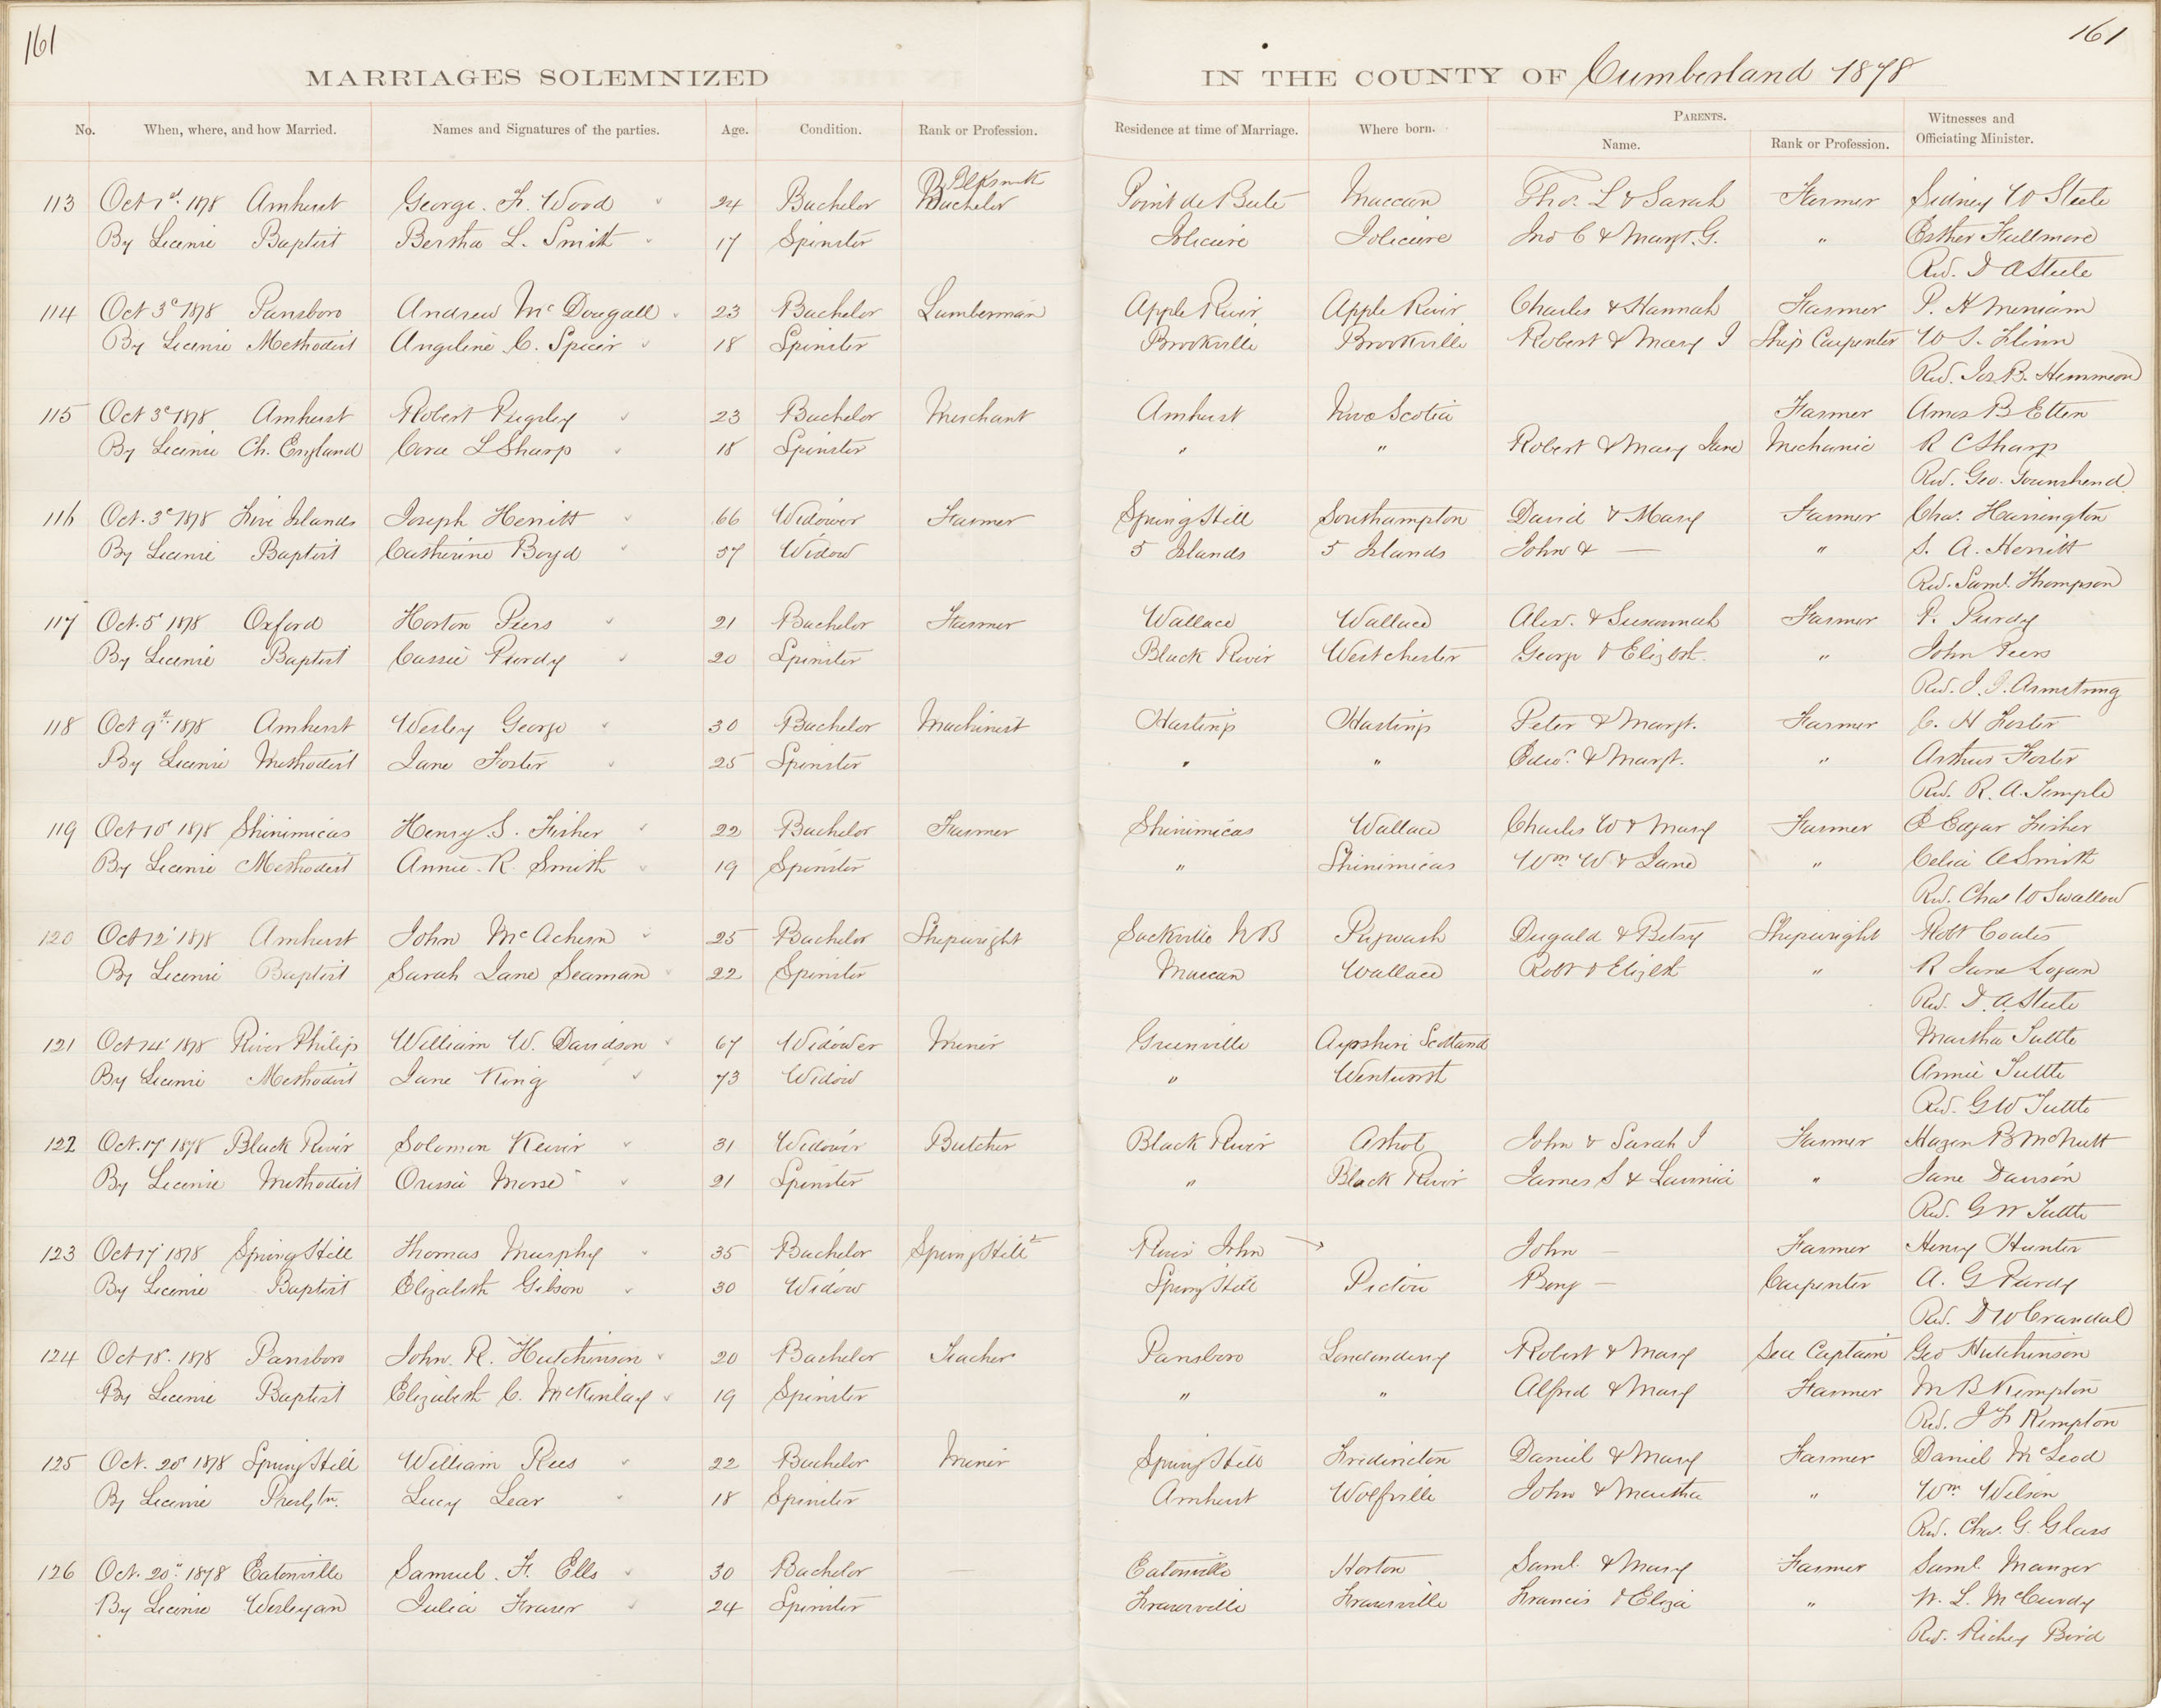 161
161
MARRIAGES SOLEMNIZED IN THE COUNTY OF Cumberland 1878
No. When, where, and how Married. Names and Signatures of the parties. Age. Condition. Rank or Profession. Residence at time of Marriage. Where born. PARENTS. Name. Rank or Profession. Witnesses and Officiating Minister.
Blksmith
113 Oct 1st 1878 Amherst George. F. Wood 24 Bachelor Bachelor Point de Bute Maccan Thos. L & Sarah Farmer Sidney W Steele
By Licenie Baptist Bertha L. Smith 17 Spinster Jolicure Jolicure Jno C & Margt. G. " Esther Fullmore
Rev. D A Steele
114 Oct 3d 1878 Parrsboro Andrew McDougall 23 Bachelor Lumberman Apple River Apple River Charles & Hannah Farmer P. H Merriam
By Licenie Methodist Angeline C. Spicer 18 Spinster Brookville Brookville Robert & Mary J Ship Carpenter W S. Flinn
Rev. Jos B. Hemmeon
115 Oct 3d 1878 Amherst Robert Pugsley 23 Bachelor Merchant Amherst Nova Scotia Farmer Amos B Etter
By Licenie Ch. England Cora L Sharp 18 Spinster " " Robert & Mary Jane Mechanic R C Sharp
Rev. Geo. Townshend
116 Oct. 3d 1878 Five Islands Joseph Herritt 66 Widower Farmer Spring Hill Southampton David & Mary Farmer Chas. Harrington
By Licenie Baptist Catherine Boyd 57 Widow 5 Islands 5 Islands John & — " S. A. Herritt
Rev. Saml. Thompson
117 Oct. 5 1878 Oxford Horton Peers 21 Bachelor Farmer Wallace Wallace Alex. & Susannah Farmer P. Purdy
By Licenie Baptist Cassie Purdy 20 Spinster Black River Westchester George & Elizbt. " John Peers
Rev. Armstrong
118 Oct 9th 1878 Amherst Wesley George 30 Bachelor Machinist Hastings Hastings Peter & Margt. Farmer C. H Foster
By Licenie Methodist Jane Foster 25 Spinster " " Edwd. & Margt. " Arthur Foster
Rev. R. A. Temple
119 Oct 10 1878 Shinimicas Henry S. Fisher 22 Bachelor Farmer Shinimicas Wallace Charles W & Mary Farmer Edgar Fisher
By Licenie Methodist Annie. R. Smith 19 Spinster " Shinimicas Wm W & Jane " Celia A Smith
Rev. Chas W Swallow
120 Oct 12 1878 Amherst John McAchern 25 Bachelor Shipwright Sackville NB Pugwash Dugald & Betsy Shipwright Robt Coates
By Licenie Baptist Sarah Jane Seaman 22 Spinster Maccan Wallace Robt & Elizbt " R Jane Logan
Rev. D. A. Steele
121 Oct 14 1878 River Philip William W. Davidson 67 Widower Miner Greenville Ayrshire Scotland Martha Tuttle
By Licenie Methodist Jane King 73 Widow " Wentworth Annie Tuttle
Rev. G W Tuttle
122 Oct. 17 1878 Black River Solomon 31 Widower Butcher Black River Athol John & Sarah J Farmer Hazen B McNutt
By Licenie Methodist Orissie Morse 21 Spinster " Black River James S & Lavinia " Jane Davison
Rev. G W Tuttle
123 Oct 17 1878 Spring Hill Thomas Murphy 35 Bachelor Spring Hill River John John — Farmer Henry Hunter
By Licenie Baptist Elizabeth Gibson 30 Widow Spring Hill Pictou Benj — Carpenter A. G Purdy
Rev. D W Crandal
124 Oct 18. 1878 Parrsboro John. R. Hutchinson 20 Bachelor Teacher Parrsboro Londonderry Robert & Mary Sea Captain Geo Hutchinson
By Licenie Baptist Elizabeth C. McKinlay 19 Spinster " " Alfred & Mary Farmer M B Kempton
Rev. J F Kempton
125 Oct. 20 1878 Spring Hill William Rees 22 Bachelor Miner Spring Hill Fredericton Daniel & Mary Farmer Daniel McLeod
By Licenie Presbtn. Lucy Lear 18 Spinster Amherst Wolfville John & Martha " Wm Wilson
Rev. Chas. G. Glass
126 Oct. 20 1878 Eatonville Samuel. F. Ells 30 Bachelor — Eatonville Horton Saml. & Mary Farmer Saml. Manzer
By License Wesleyan Julia Fraser 24 Spinster Fraserville Fraserville Francis & Eliza " W. L. McCurdy
Rev. Richey Bird